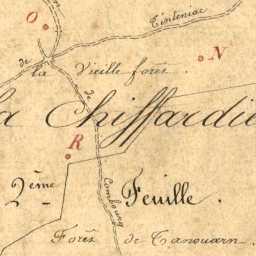 Tinteniac
O
V
de
la Vieille forêt
de
la Chiffardiè
R
2ème Feuille.
Combourg
Forêt de Tanouarn